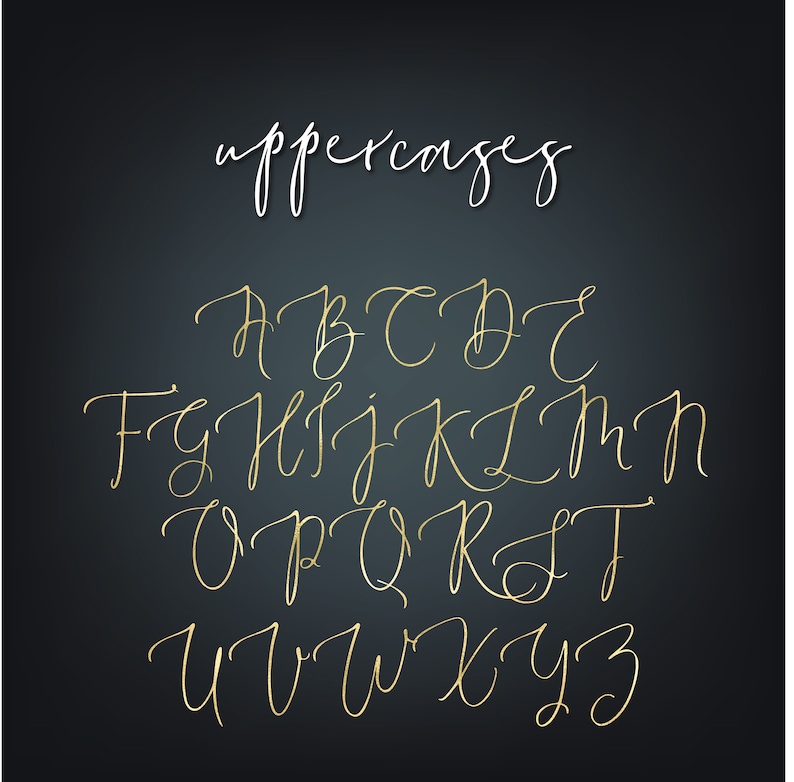 uppercases
A B C D E
F G H I j K L M N
O P Q R S T
U V W X Y Z